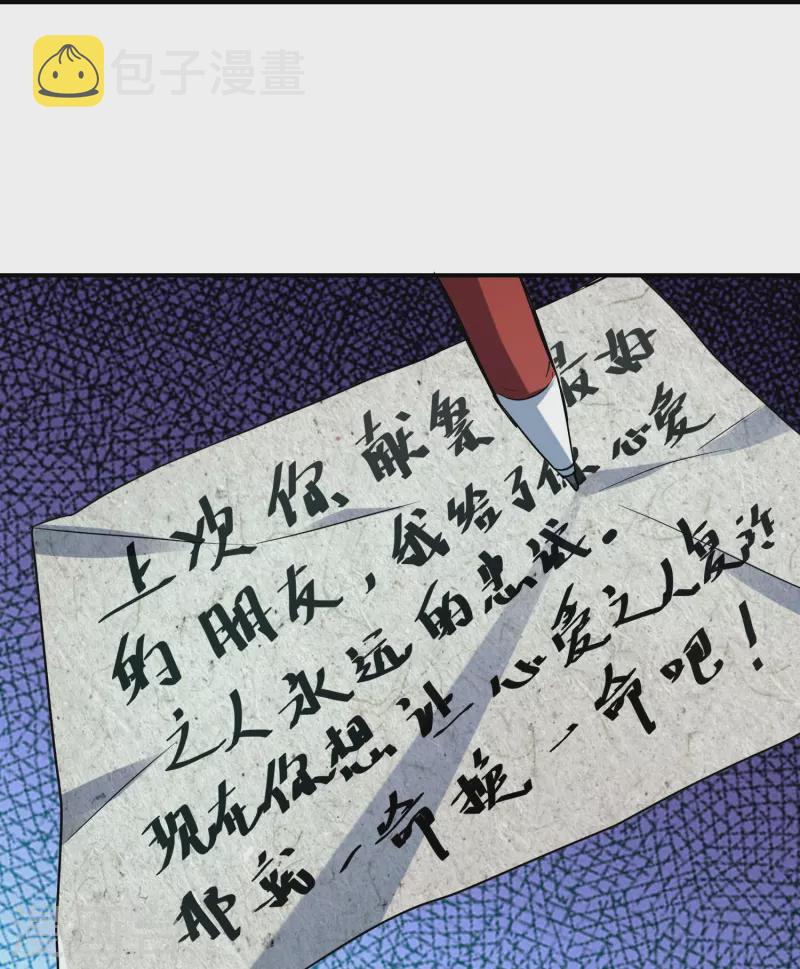 包子漫畫
上次你献祭 最好
的朋友，我给了你心爱
之人永远的忠诚。
现在你想让心爱之人复活
那就一命换一命吧！